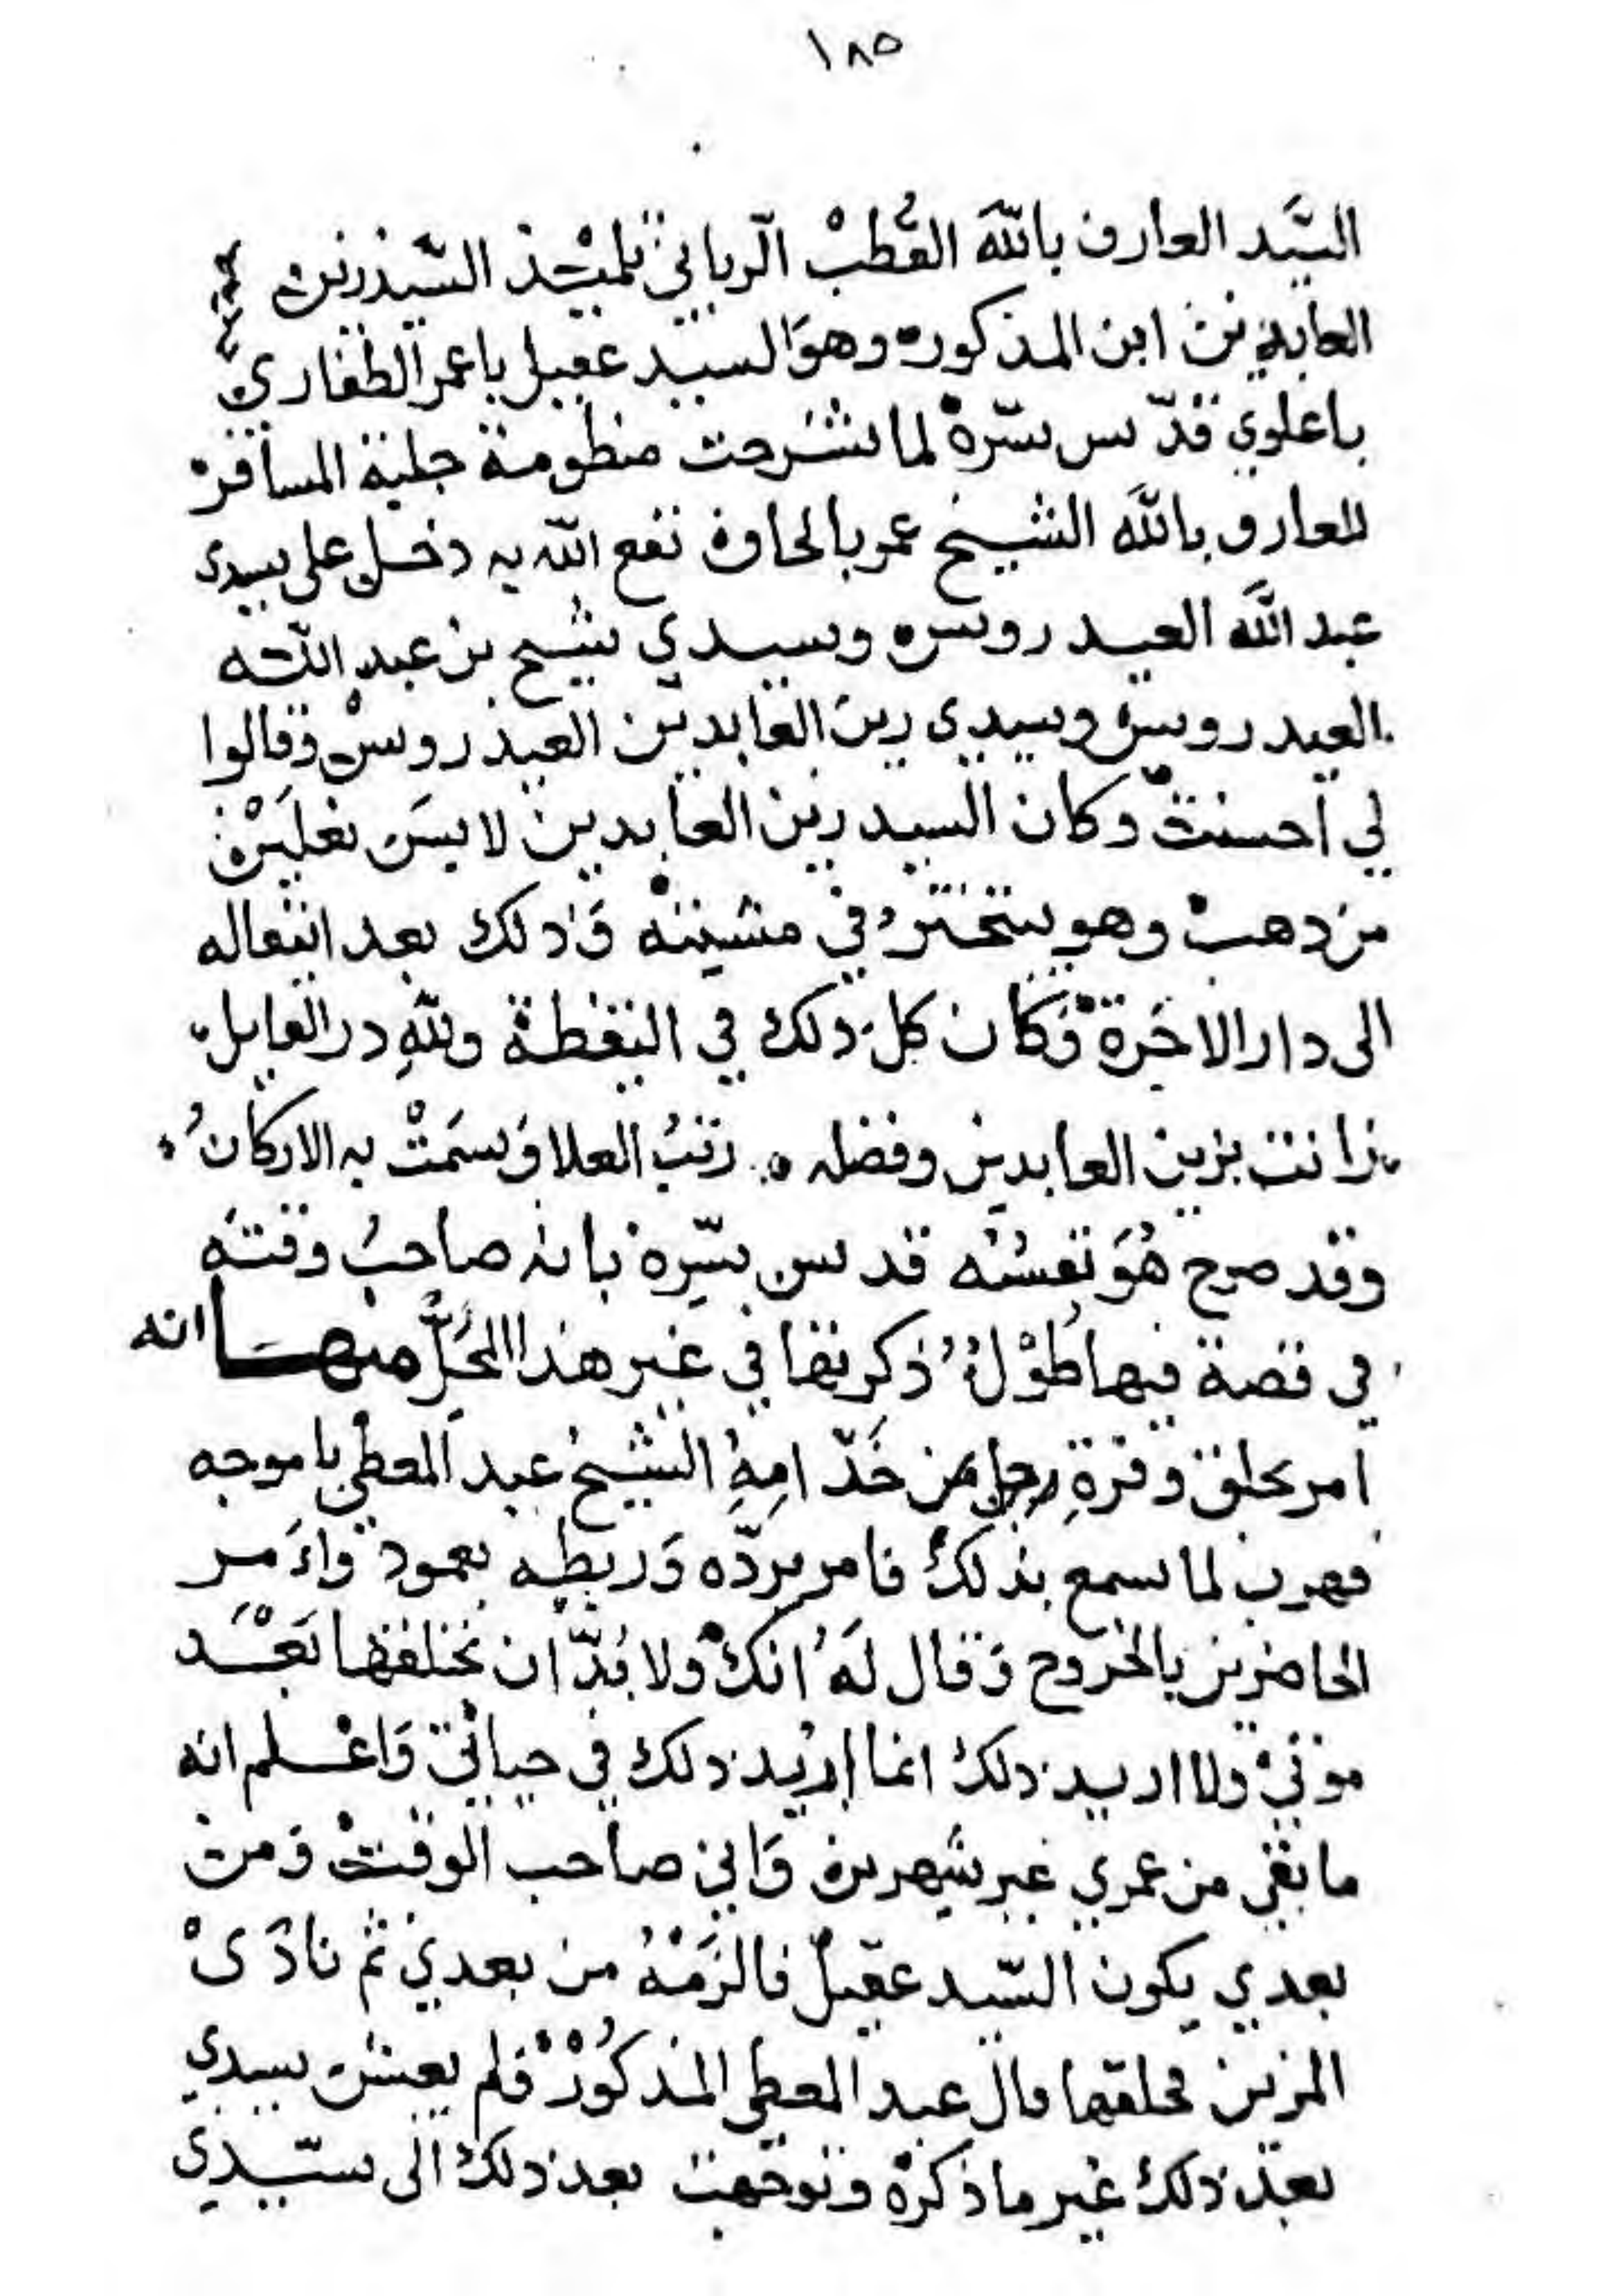 ١٨٥
السَّيد العارف بالله القُطبْ الرباني تلميذ السيد زين
العابدين ابن المذكوره وهوَ السيد عقيل باعمر الظفاري
باعلوي قدّس سّرهْ لما شرحت منظومة حلية المسافر
للعارف بالله الشيخ عمر بالحاف نفع الله به دخل على سيدي
عبد الله العيدروسه وسيدي شيخ بن عبد الله
العيدروس وسيدي زين العابدين العيدروس وقالوا
لي احسنتْ وكان السيد زين العابدين لابسَ نعلَيْن
من ذهبْ وهو يتبخترُ في مشيته وَذلك بعد انتقاله
الى دار الاخَرة وَكان كل ذلك في اليقظة ولله در القايل
زانت بزين العابدين وفضله ٥ رتبُ العلا وَسمَتْ به الاركانُ
وقد صرح هُوَ نفسُه قدس سّره بانه صاحبُ وقته
في قصة فيها طُوْل ذكرتها في غير هذا المحَلّ منهَا انه
امر بحلق وفرةِ رجل من خَدّامِهِ الشيخ عبد المعطي باموجه
فهرب لما سمع بذلك فامر بردّه وَربطه بعمود وَاَمر
الحاضرين بالخروج وَقال لَهُ انكْ ولا بُدّ ان تحلقها بَعْد
موتيْ ولا اريد ذلك انما اريد ذلك في حياتي وَاعْلم انه
ما بقي من عمري غير شهرين وَاني صاحب الوقتْ وَمن
بعدي يكون السّيد عقيل فالزَمْهُ من بعدي ثم نادَىْ
المزين فحلقها قال عبد المعطي المذكُورْ فلم يعش سيدي
بعد ذلك غير ما ذكرهْ وتوجهت بعد ذلك الى سيّدي